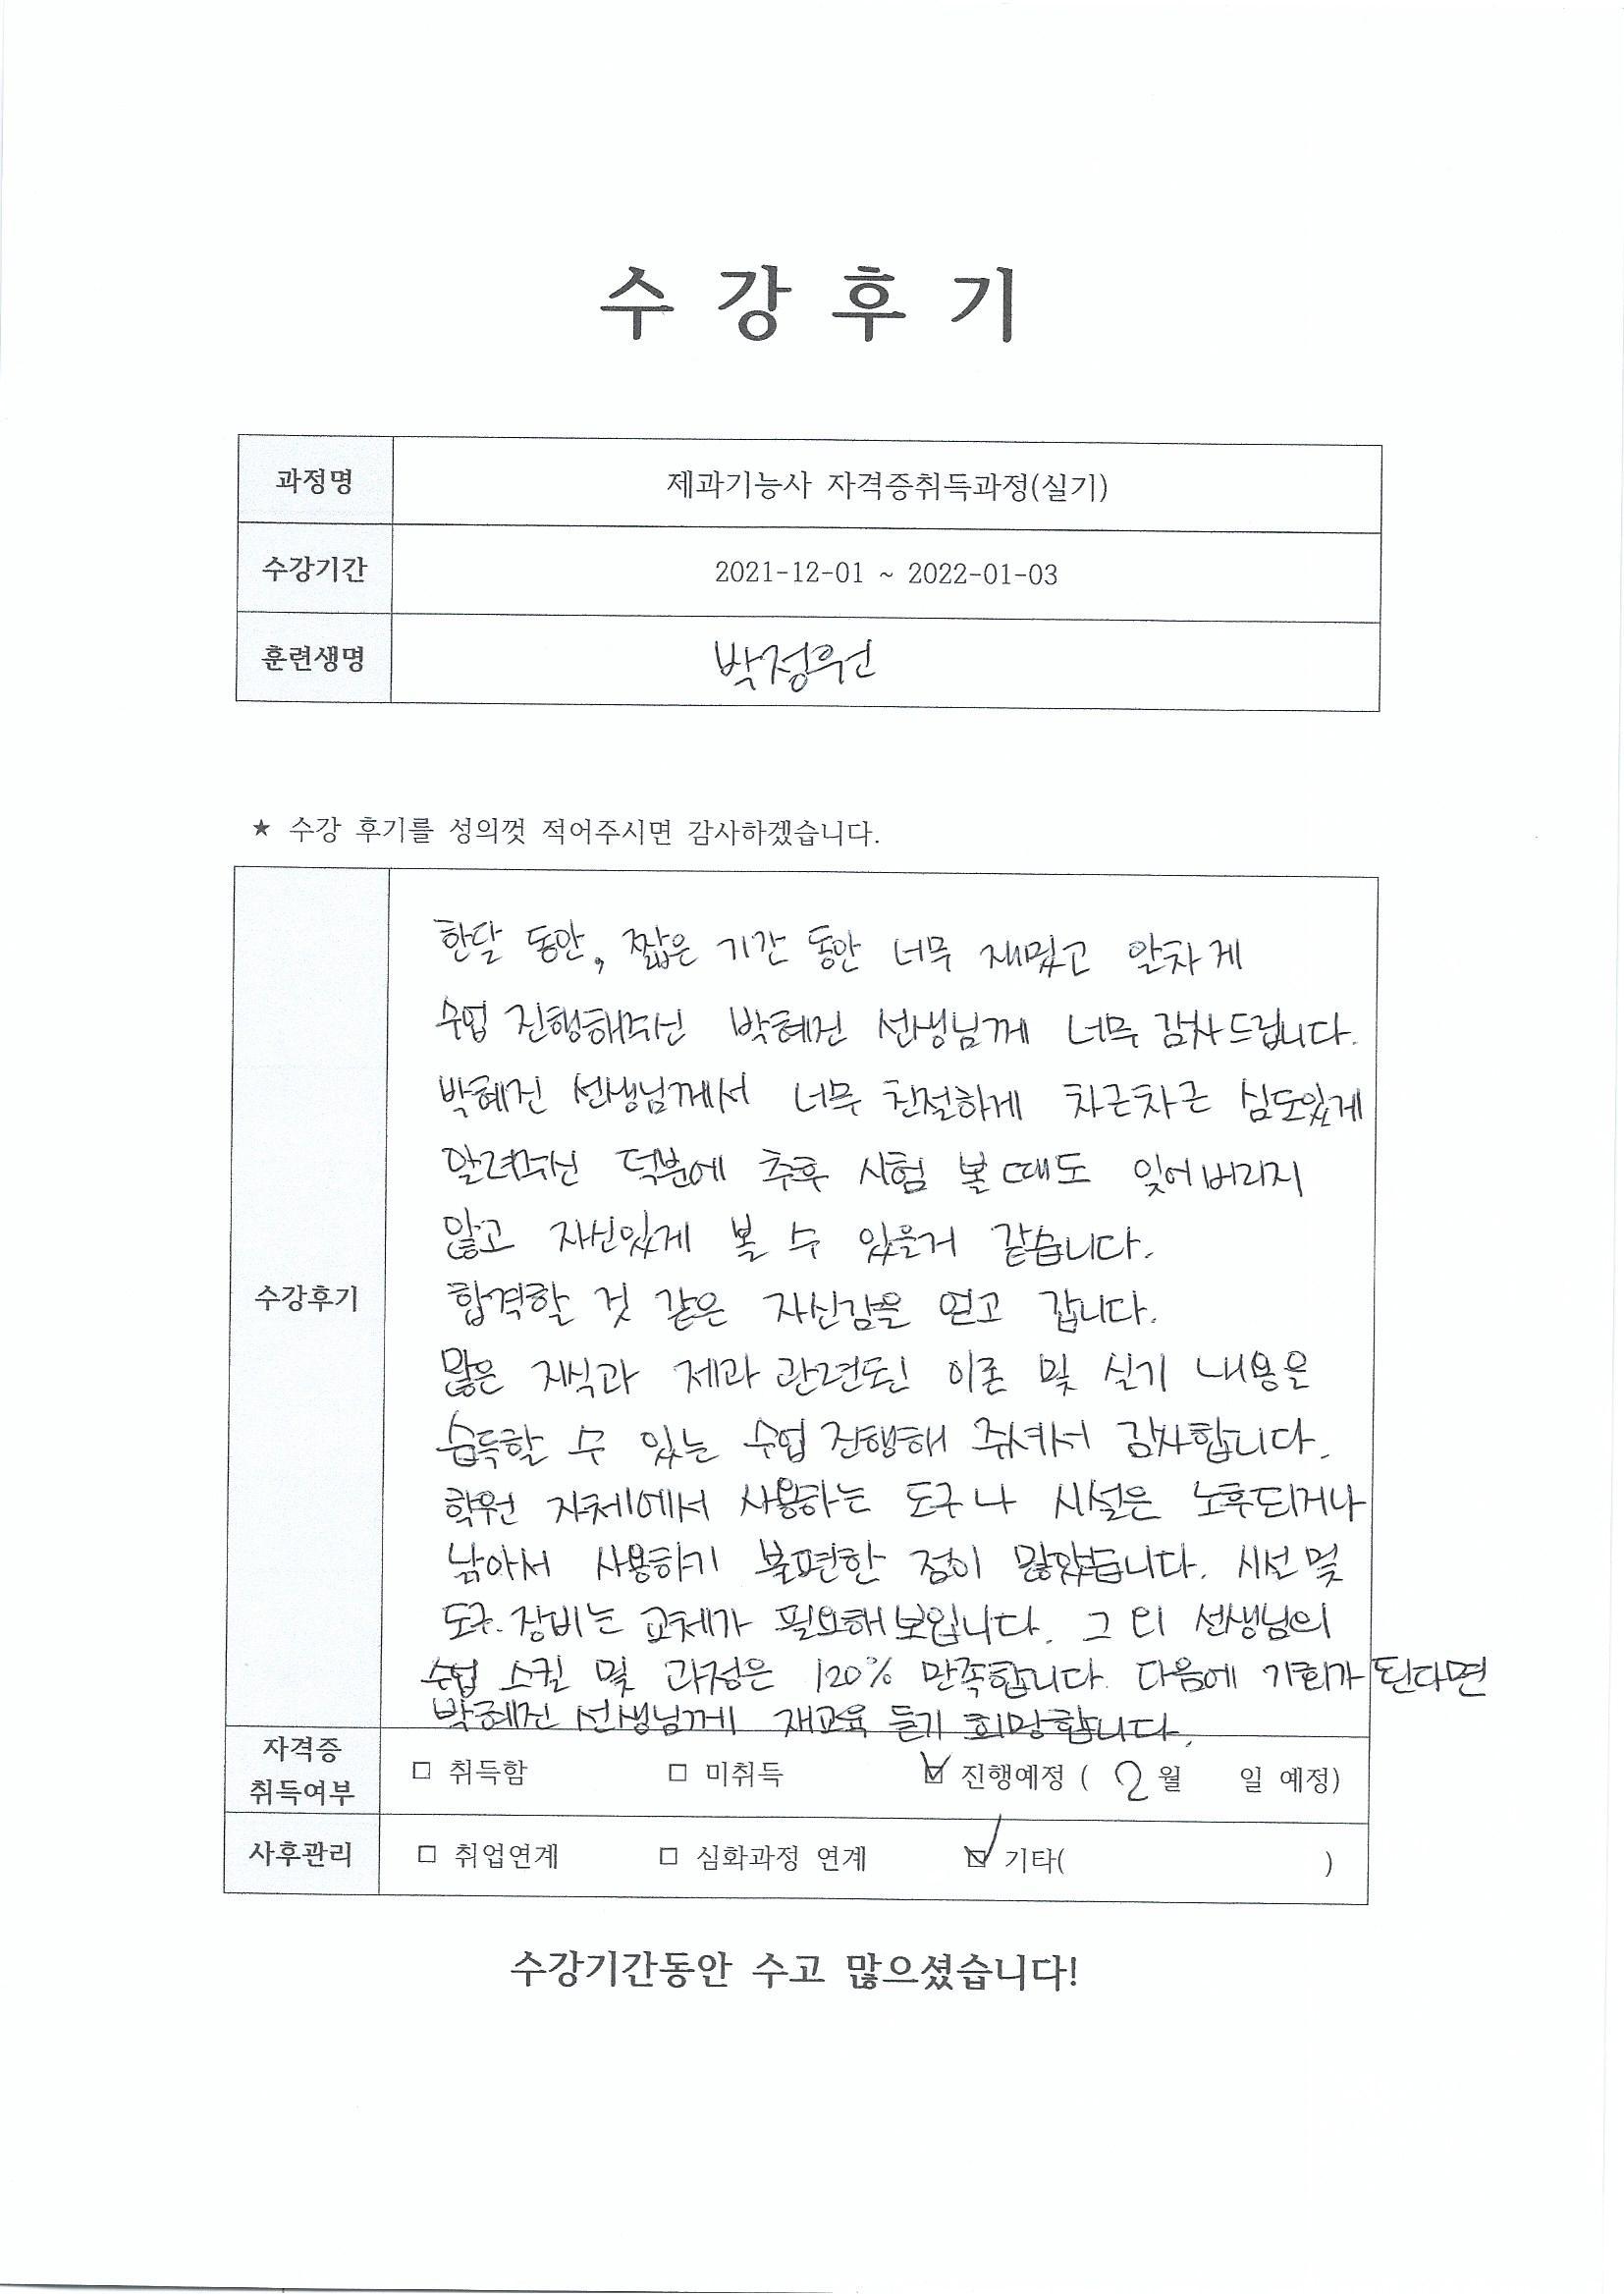 수 강 후 기
과정명 제과기능사 자격증취득과정(실기)
수강기간 2021-12-01 ~ 2022-01-03
훈련생명 박정원
★ 수강 후기를 성의껏 적어주시면 감사하겠습니다.
수강후기
한달 동안, 짧은 기간 동안 너무 재밌고 알차게
수업 진행해주신 박혜진 선생님께 너무 감사드립니다.
박혜진 선생님께서 너무 친절하게 차근차근 심도있게
알려주신 덕분에 추후 시험 볼 때도 잊어버리지
않고 자신있게 볼 수 있을거 같습니다.
합격할 것 같은 자신감을 얻고 갑니다.
많은 지식과 제과 관련된 이론 및 실기 내용은
습득할 수 있는 수업 진행해 주셔서 감사합니다.
학원 자체에서 사용하는 도구나 시설은 노후되거나
낡아서 사용하기 불편한 점이 많았습니다. 시설 및
도구. 장비는 교체가 필요해보입니다. 그 외 선생님의
수업 스킬 및 과정은 120% 만족합니다. 다음에 기회가 된다면
박혜진 선생님께 재교육 듣기 희망합니다.
자격증
취득여부 □ 취득함 □ 미취득 ☑ 진행예정 ( 2월 일 예정)
사후관리 □ 취업연계 □ 심화과정 연계 ☑ 기타( )
수강기간동안 수고 많으셨습니다!